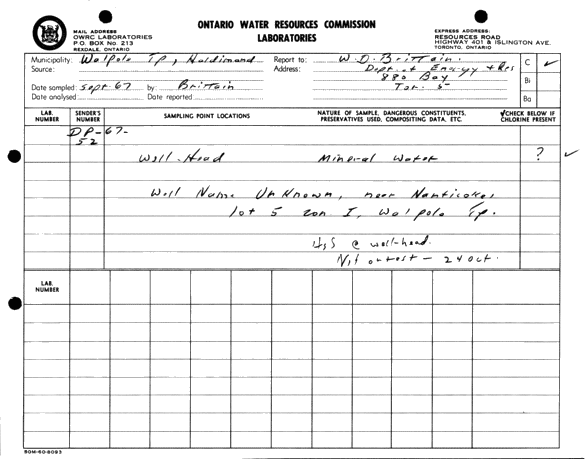 ONTARIO WATER RESOURCES COMMISSION
LABORATORIES
MAIL ADDRESS
OWRC LABORATORIES
P.O. BOX No 213
REXDALE, ONTARIO
EXPRESS ADDRESS:
RESOURCES ROAD
HIGHWAY 401 & ISLINGTON AVE.
TORONTO, ONTARIO
Municipality: Walpole Tp, Haldimand
Source:
Date sampled: Sept 67 by: Brittain
Date analysed Date reported
Report to: W. D. Brittain.
Address: Dept. of Energy + Res
880 Bay
Tor. 5
C ✓
Bi
Ba
LAB. NUMBER SENDER'S NUMBER SAMPLING POINT LOCATIONS NATURE OF SAMPLE, DANGEROUS CONSTITUENTS, PRESERVATIVES USED, COMPOSITING DATA, ETC. ✓CHECK BELOW IF CHLORINE PRESENT
DP-67-
52
Well-Head Mineral Water ? ✓
Well Name Unknown, near Nanticoke,
lot 5 con I, Walpole Tp.
H₂S @ well-head.
24 Oct.
LAB. NUMBER
50M-60-8083